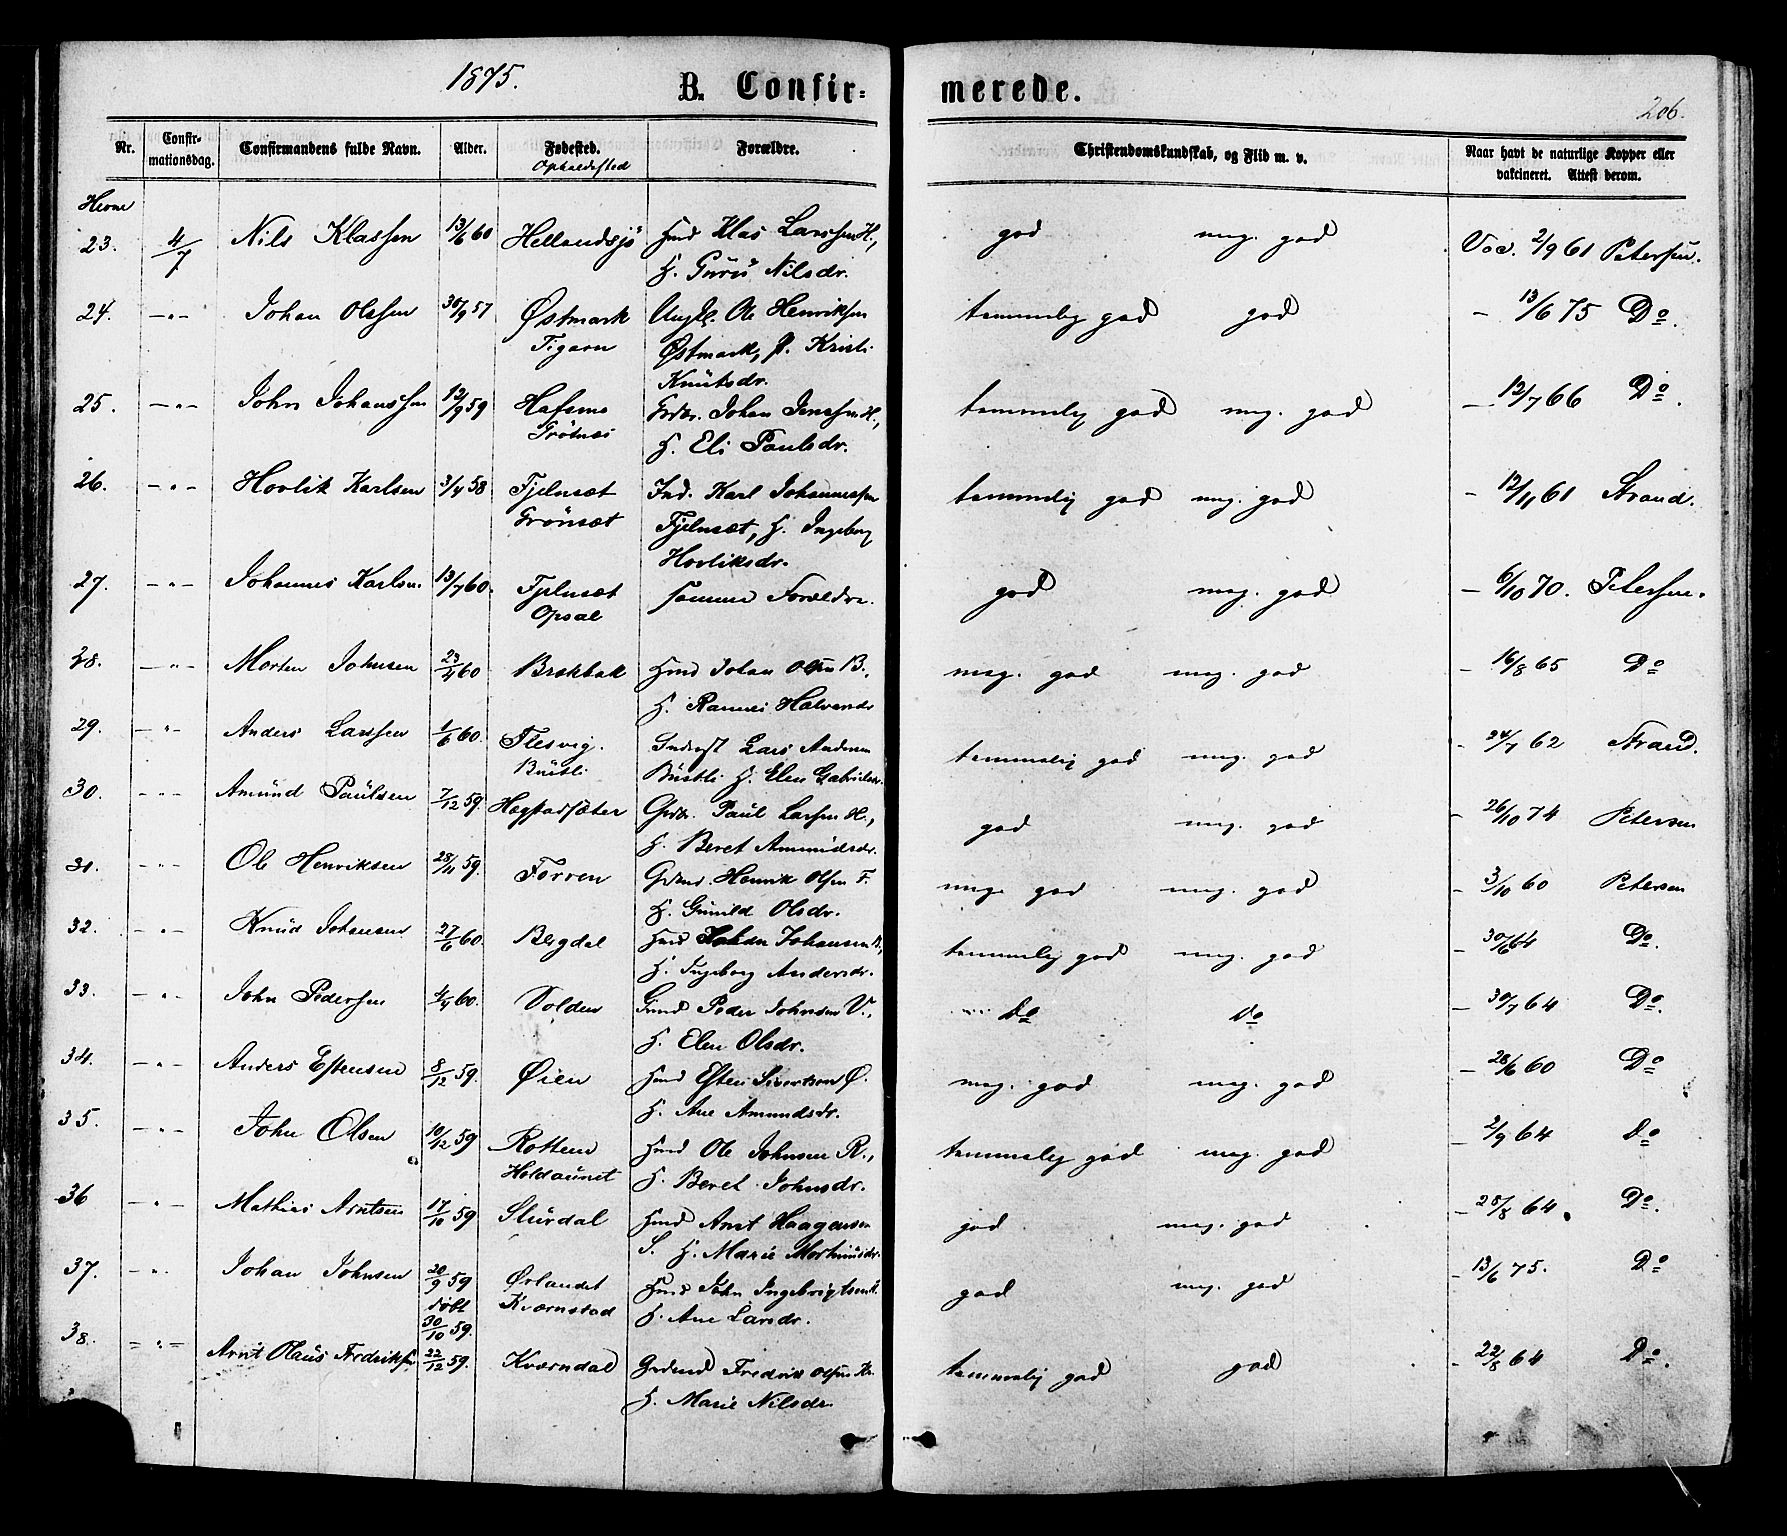 1875.
B. Confirmerede.
206.
Nr. Confirmationsdag. Confirmandens fulde Navn. Alder. Fødested. Opholdsted Forældre. Christendomskundskab, og Flid m. v. Naar havt de naturlige Kopper eller vakcineret. Attest derom.
Hevne
23. 4/7 Nils Klassen 13/6 60 Hellandsjö Hmd Klas Larssen H., god meg. god Vac. 2/9 61 Petersen.
H. Gurü Nilsdr.
24. -"- Johan Olssen 30/9 57 Østmark Ungk. Ole Henriksen temmelig god god - 13/6 75 Do.
Tigarn Østmark, P. Kristi
Knütsdr.
25. -"- John Johanssen 12/9 59 Hafsmo Grdbr. Johan Jenssen H., temmelig god meg. god - 12/7 66 Do.
Grötnes H. Eli Paulsdr.
26. -"- Hovlik Karlsen 3/4 58 Fjelnsæt Ind. Karl Johannessen temmelig god meg. god - 12/11 61 Strand.
Grönsæt Fjelnsæt, H. Ingeborg
Hovliksdr.
27. -"- Johannes Karlsen 13/7 60. Fjelnsæt samme Forældre. god meg. god - 6/10 70. Petersen.
Opsal
28. -"- Morten Johnsen 23/4 60 Brekbak Hmd Johan Olsen B., meg. god meg. god - 16/8 65 Do
H. Rannei Halvands
29. -"- Anders Larssen 1/6 60. Flesvig. Inderst Lars Andersen temmelig god meg. god - 24/7 62 Strand.
Büstli Büstli H. Elen Gabrielsdr.
30. -"- Amünd Paülsen 7/12 59. Hægstadsæter Grdbr. Paul Larsen H., god meg. god - 26/10 74 Petersen
H. Beret Amundsdr.
31. -"- Ole Henriksen 28/11 59. Forren Grdmd. Henrik Olsen F. meg. god meg. god - 3/10 60 Petersen
H. Gunild Olsdr.
32. -"- Knüd Johansen 27/6 60. Bergdal Hmd Johan Johansen B, temmelig god meg. god - 30/6 64 Do.
H. Ingeborg Andersdr.
33. -"- John Pedersen 4/4 60. Volden Grmd Peder Johnsen V., Do Do - 30/7 64 Do.
H. Elen Olsdr.
34. -"- Anders Estensen 8/12 59. Øien Hmd Esten Sivertsen Ø. meg. god meg. god - 28/6 60 Do
H. Ane Amundsdr.
35. -"- John Olsen 10/12 59 Rottem Hmd Ole Johnsen R., temmelig god meg. god - 2/9 64 Do
Holdaünet H. Beret Johnsdr.
36 -"- Mathias Arntsen 17/10 59 Stürdal Hmd Arnt Haagensen god meg. god - 28/8 64. Do.
S. H. Marie Mortinüsdr.
37. -"- Johan Johnsen 20/9 59 Ørlandet Hmd John Ingebrigtsen K. god meg. god - 13/6 75. Do
döbt Kværnstad H. Ane Larsdr.
30/10 59.
38. -"- Arnt Olaüs Fredriksen 22/12 59. Kværndal Grdmd Fredrik Olsen Kv. temmelig god god - 22/8 64 Do.
H. Marie Nilsdr.